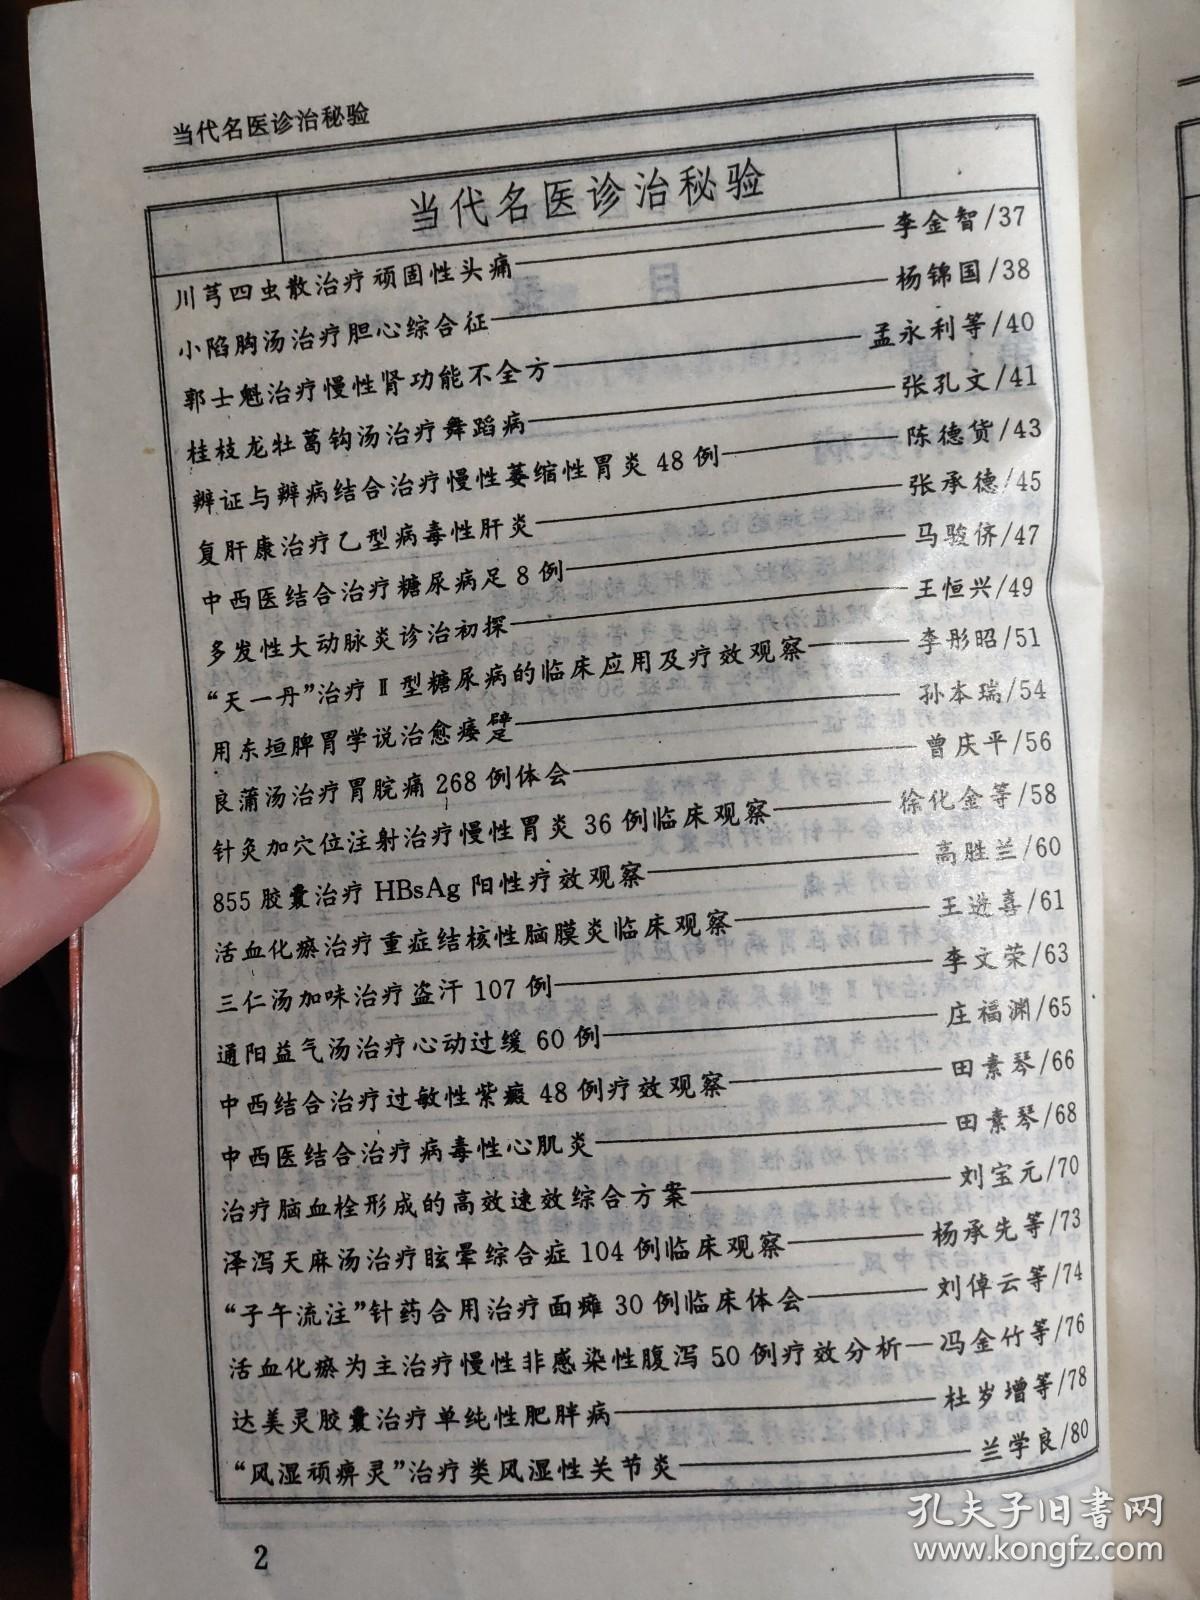 当代名医诊治秘验
当代名医诊治秘验
川芎四虫散治疗顽固性头痛——李金智/37
小陷胸汤治疗胆心综合征——杨锦国/38
郭士魁治疗慢性肾功能不全方——孟永利等/40
桂枝龙牡葛钩汤治疗舞蹈病——张孔文/41
辨证与辨病结合治疗慢性萎缩性胃炎48例——陈德货/43
复肝康治疗乙型病毒性肝炎——张承德/45
中西医结合治疗糖尿病足8例——马骏侪/47
多发性大动脉炎诊治初探——王恒兴/49
“天一丹”治疗Ⅱ型糖尿病的临床应用及疗效观察——李彤昭/51
用东垣脾胃学说治愈痿躄——孙本瑞/54
良蒲汤治疗胃脘痛268例体会——曾庆平/56
针灸加穴位注射治疗慢性胃炎36例临床观察——徐化金等/58
855胶囊治疗HBsAg阳性疗效观察——高胜兰/60
活血化瘀治疗重症结核性脑膜炎临床观察——王进喜/61
三仁汤加味治疗盗汗107例——李文荣/63
通阳益气汤治疗心动过缓60例——庄福渊/65
中西结合治疗过敏性紫癜48例疗效观察——田素琴/66
中西医结合治疗病毒性心肌炎——田素琴/68
治疗脑血栓形成的高效速效综合方案——刘宝元/70
泽泻天麻汤治疗眩晕综合症104例临床观察——杨承先等/73
“子午流注”针药合用治疗面瘫30例临床体会——刘倬云等/74
活血化瘀为主治疗慢性非感染性腹泻50例疗效分析—冯金竹等/76
达美灵胶囊治疗单纯性肥胖病——杜岁增等/78
“风湿顽痹灵”治疗类风湿性关节炎——兰学良/80
2
孔夫子旧书网
www.kongfz.com